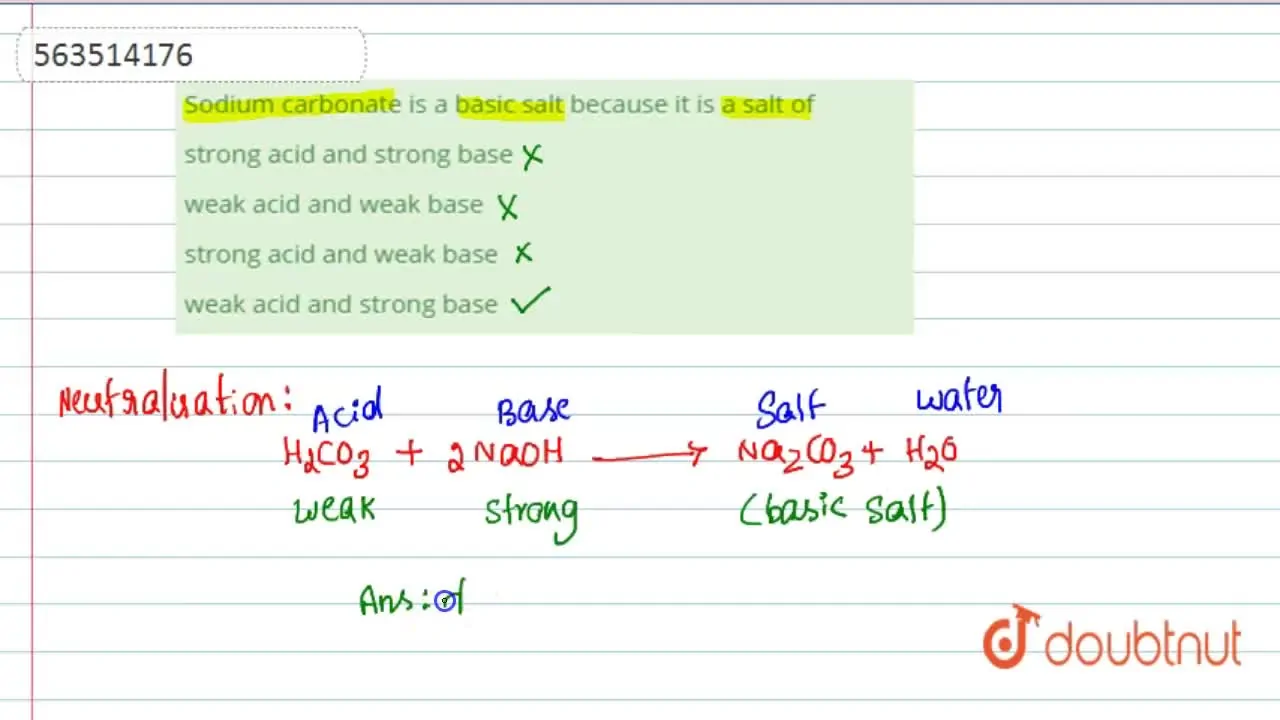 563514176
Sodium carbonate is a basic salt because it is a salt of
strong acid and strong base ✗
weak acid and weak base ✗
strong acid and weak base ✗
weak acid and strong base ✓
Neutralization:
Acid Base Salt water
H₂CO₃ + 2NaOH → Na₂CO₃ + H₂O
weak strong (basic salt)
Ans: d
doubtnut